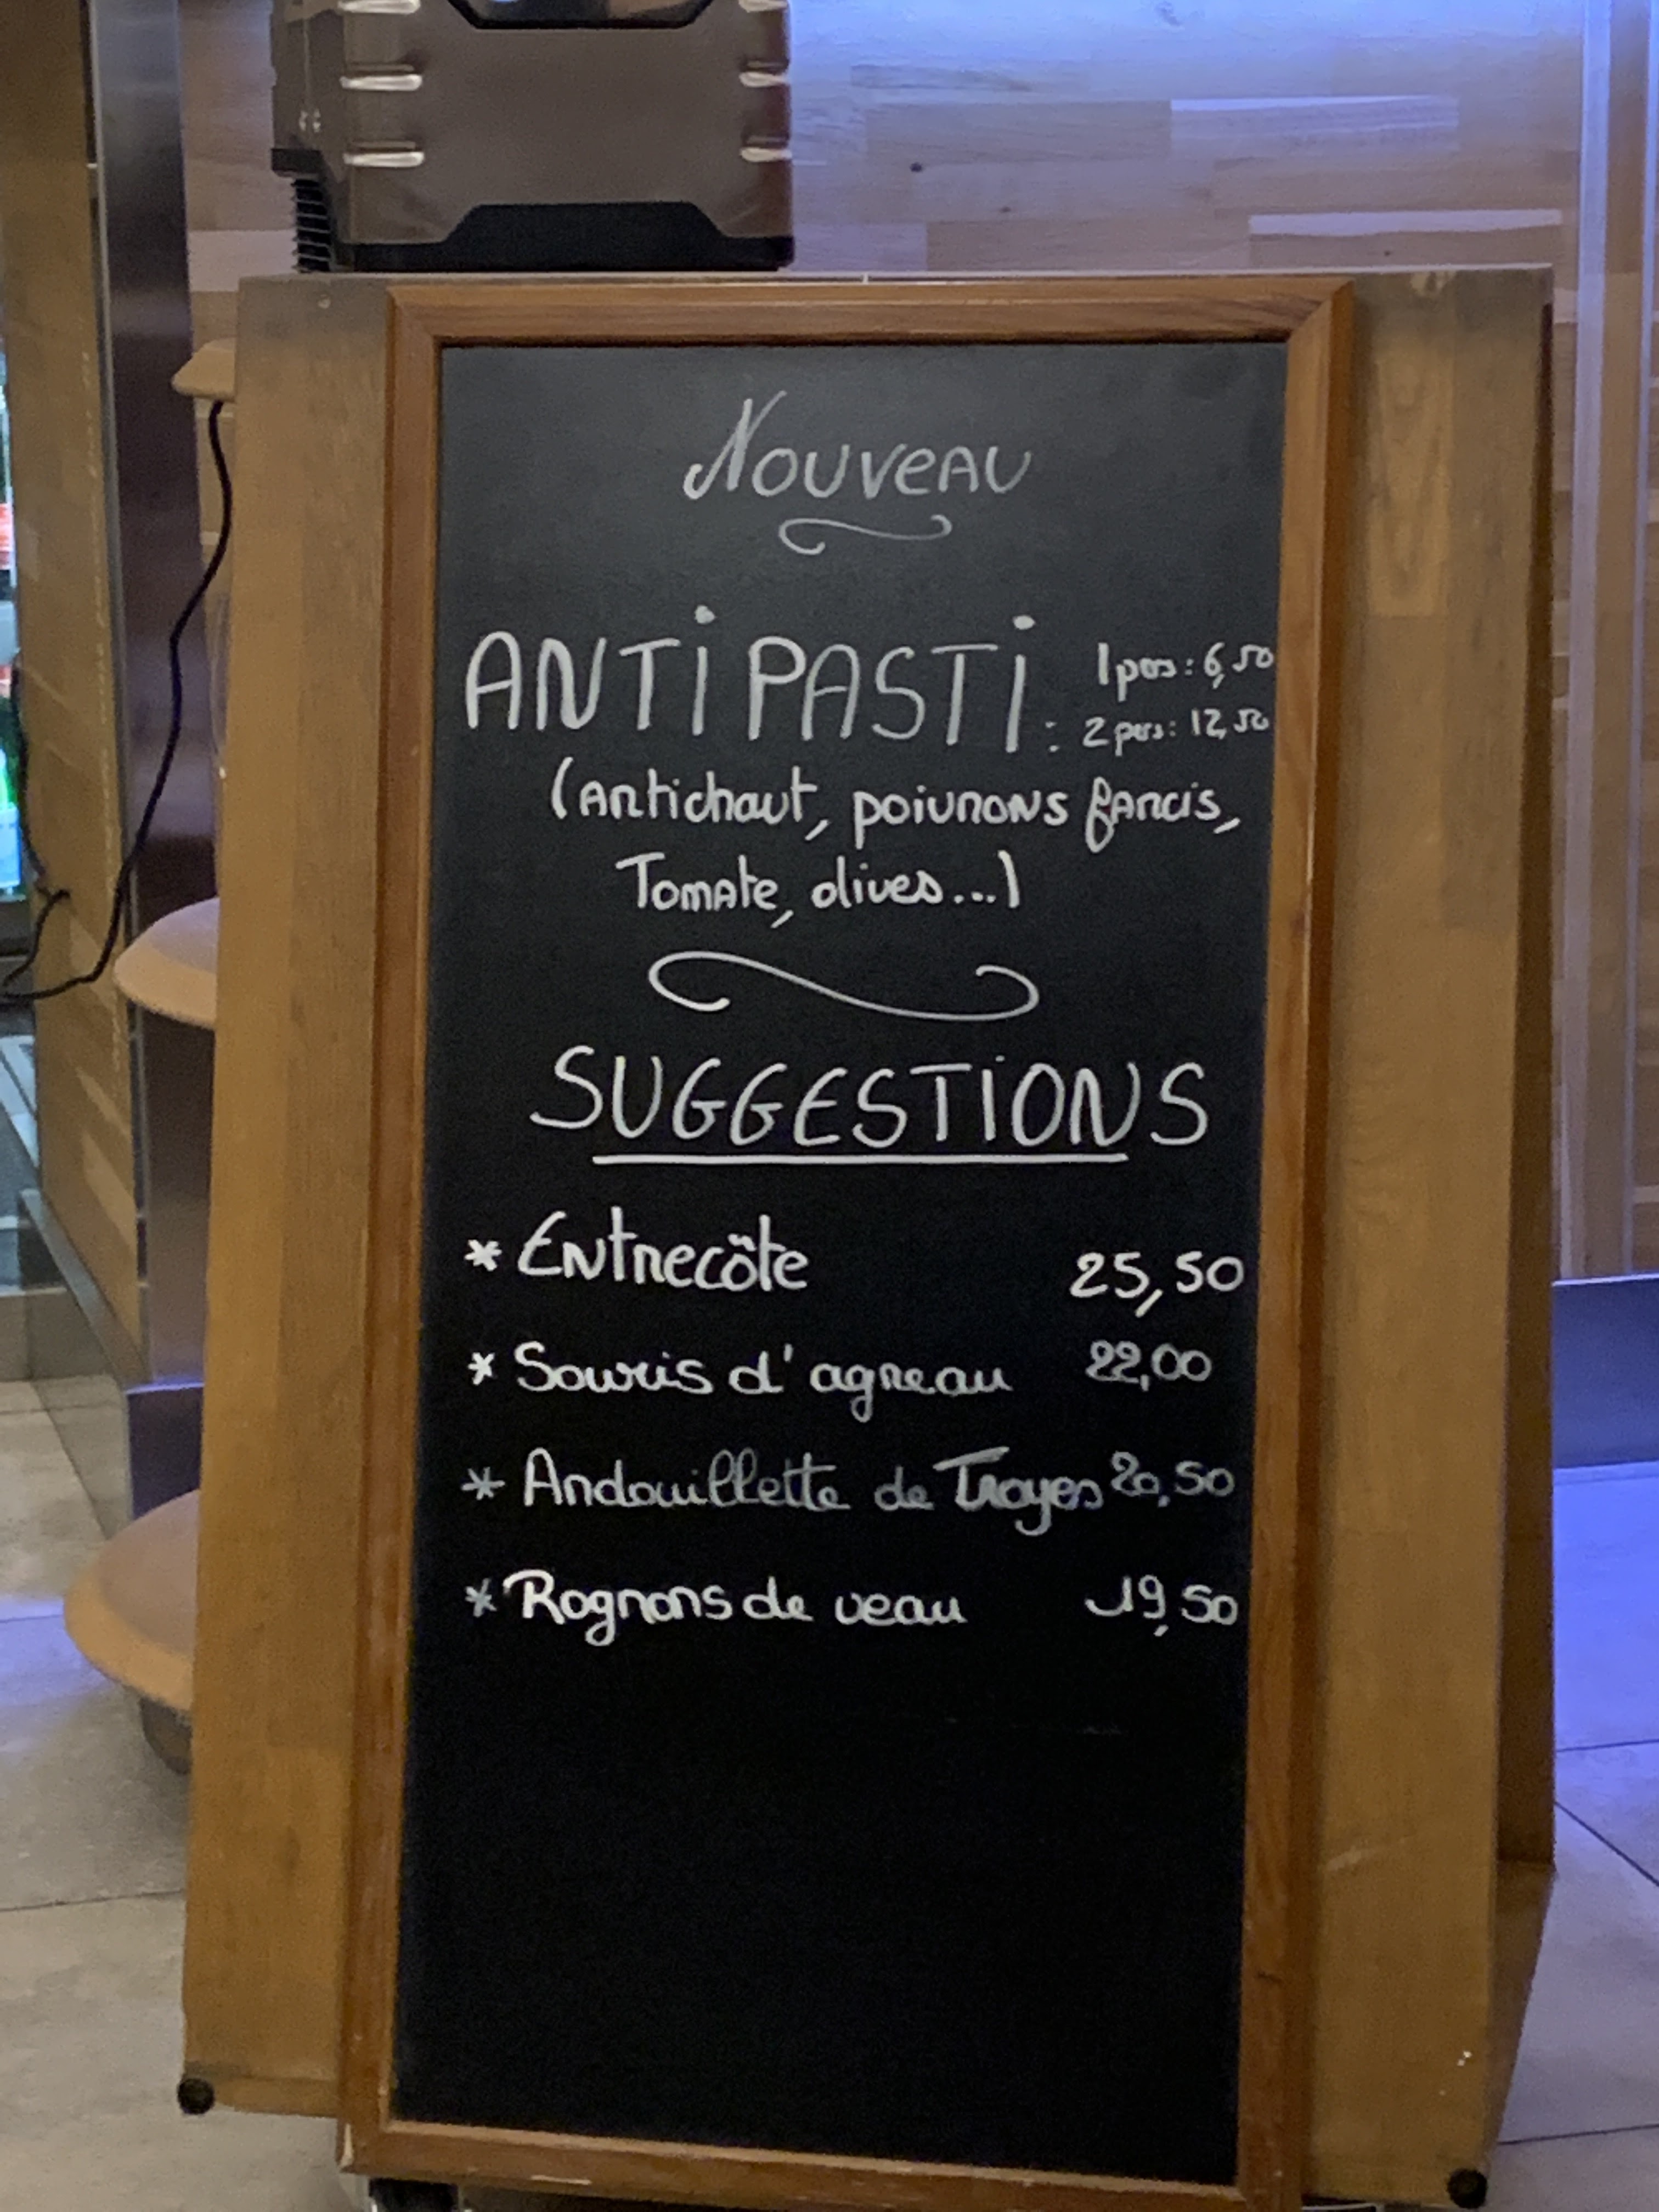 Nouveau
ANTIPASTI : 1 pers : 6,50
2 pers : 12,50
(Artichaut, poivrons farcis,
Tomate, olives...)
SUGGESTIONS
* Entrecôte 25,50
* Souris d'agneau 22,00
* Andouillette de Troyes 20,50
* Rognons de veau 19,50